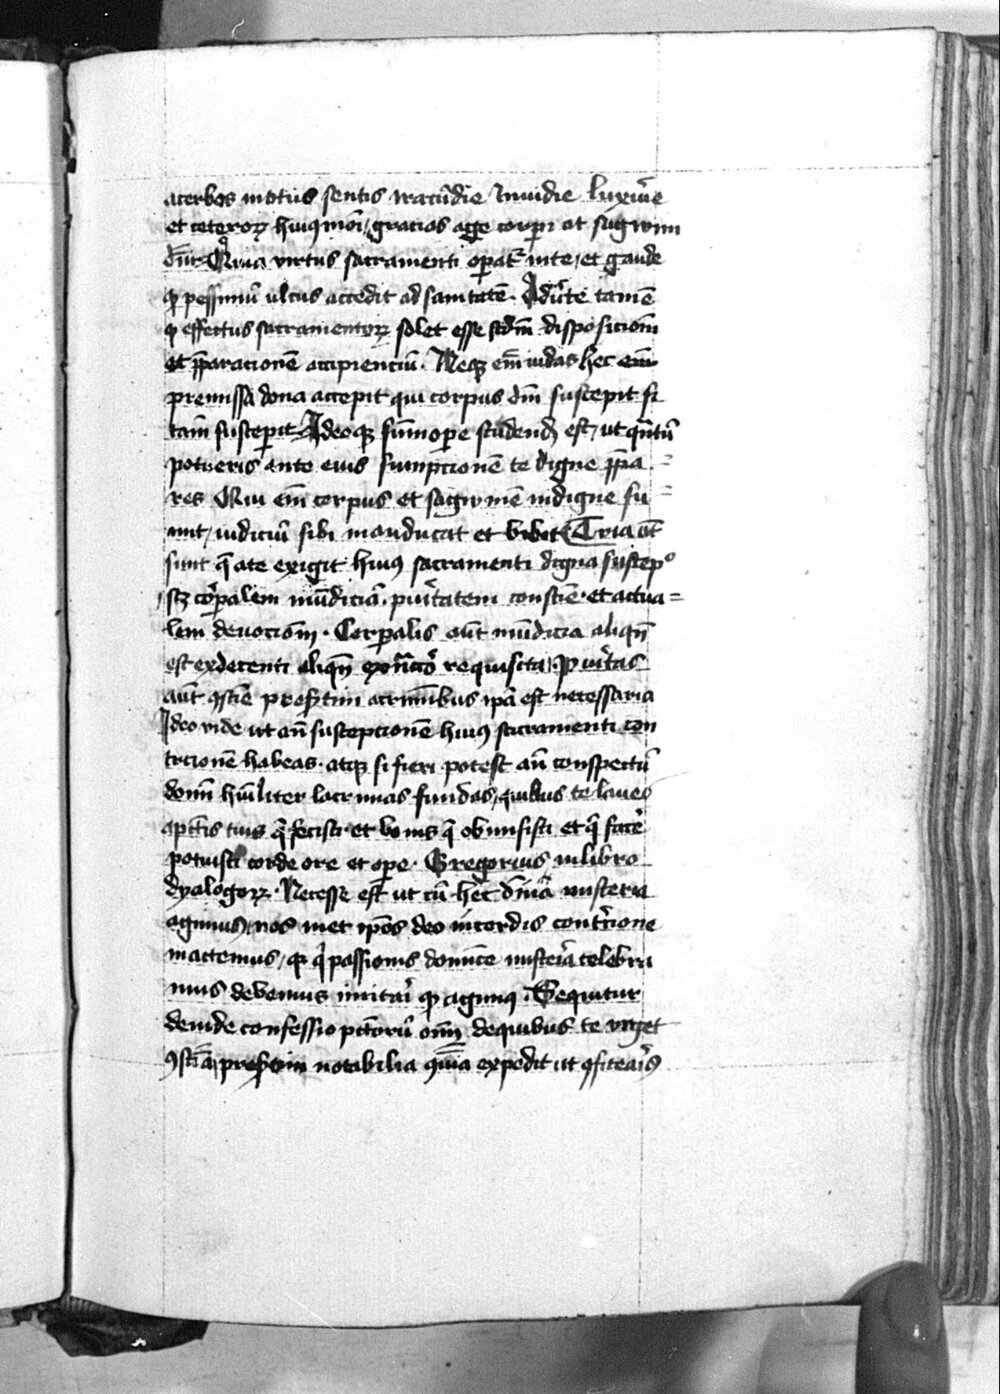 acerbos motus sentis iracūdie inuidie luxurie
et ceterorꝫ huiꝰmōi, gracias age corpori at sagwini
dn̄i. Quia virtus sacramenti operat᷑ in te, et gaude
qꝫ pessimū ulcus accedit ad sanitatē. Aduerte tamē
qꝫ effectus sacramentorꝫ solet esse scd̄m disposicionem
et p̄paracionē accipienciū. Neqꝫ em̄ iudas hec em̄
premissa dona accepit qui corpus dn̄i suscepit si
tam̄ suscepit Ideoqꝫ sum̄opere studend᷑ est, ut qn̄tū
potueris ante eius sumpcionē te digne p̄pa=
res Qui em̄ corpus et sagwinē indigne su=
mit, iudiciū sibi manducat et bibet Tria at̄
sunt q̄ a te exigit huiꝰ sacramenti digna suscepᵒ
scꝫ corꝑalem mūdiciā. puritatem consciē. et actua=
lem deuocionem. Corporalis aūt mūdicia aliqn̄
est ex decenti aliqn̄ requisita Puritas
aūt ꝯsciē presertim a criminibus ip̄a est necessaria
Ideo vide ut an̄ suscepcionē huiꝰ sacramenti con
tricionē habeas. atqꝫ si fieri potest an̄ conspectū
domī hūiliter lacrimas fundas, quibus te laues
a pctīs tuis q̄ fecisti et bonis q̄ obmisisti et q̄ facere
potuisti corde ore et ope. Gregorius in libro
dyalogorꝫ. Necesse est ut cū hec diuīa misteria
agimus, nos met ipos deo in cordis contricione
mactemus, qꝫ q̄ passionis dominice misteria celebra
mus debemus imitari qꝫ agimꝰ. Sequitur
deinde confessio pctōrū om̄ de quibus te urget
ꝯsciā presertim notabilia quia expedit ut ꝯfitearis